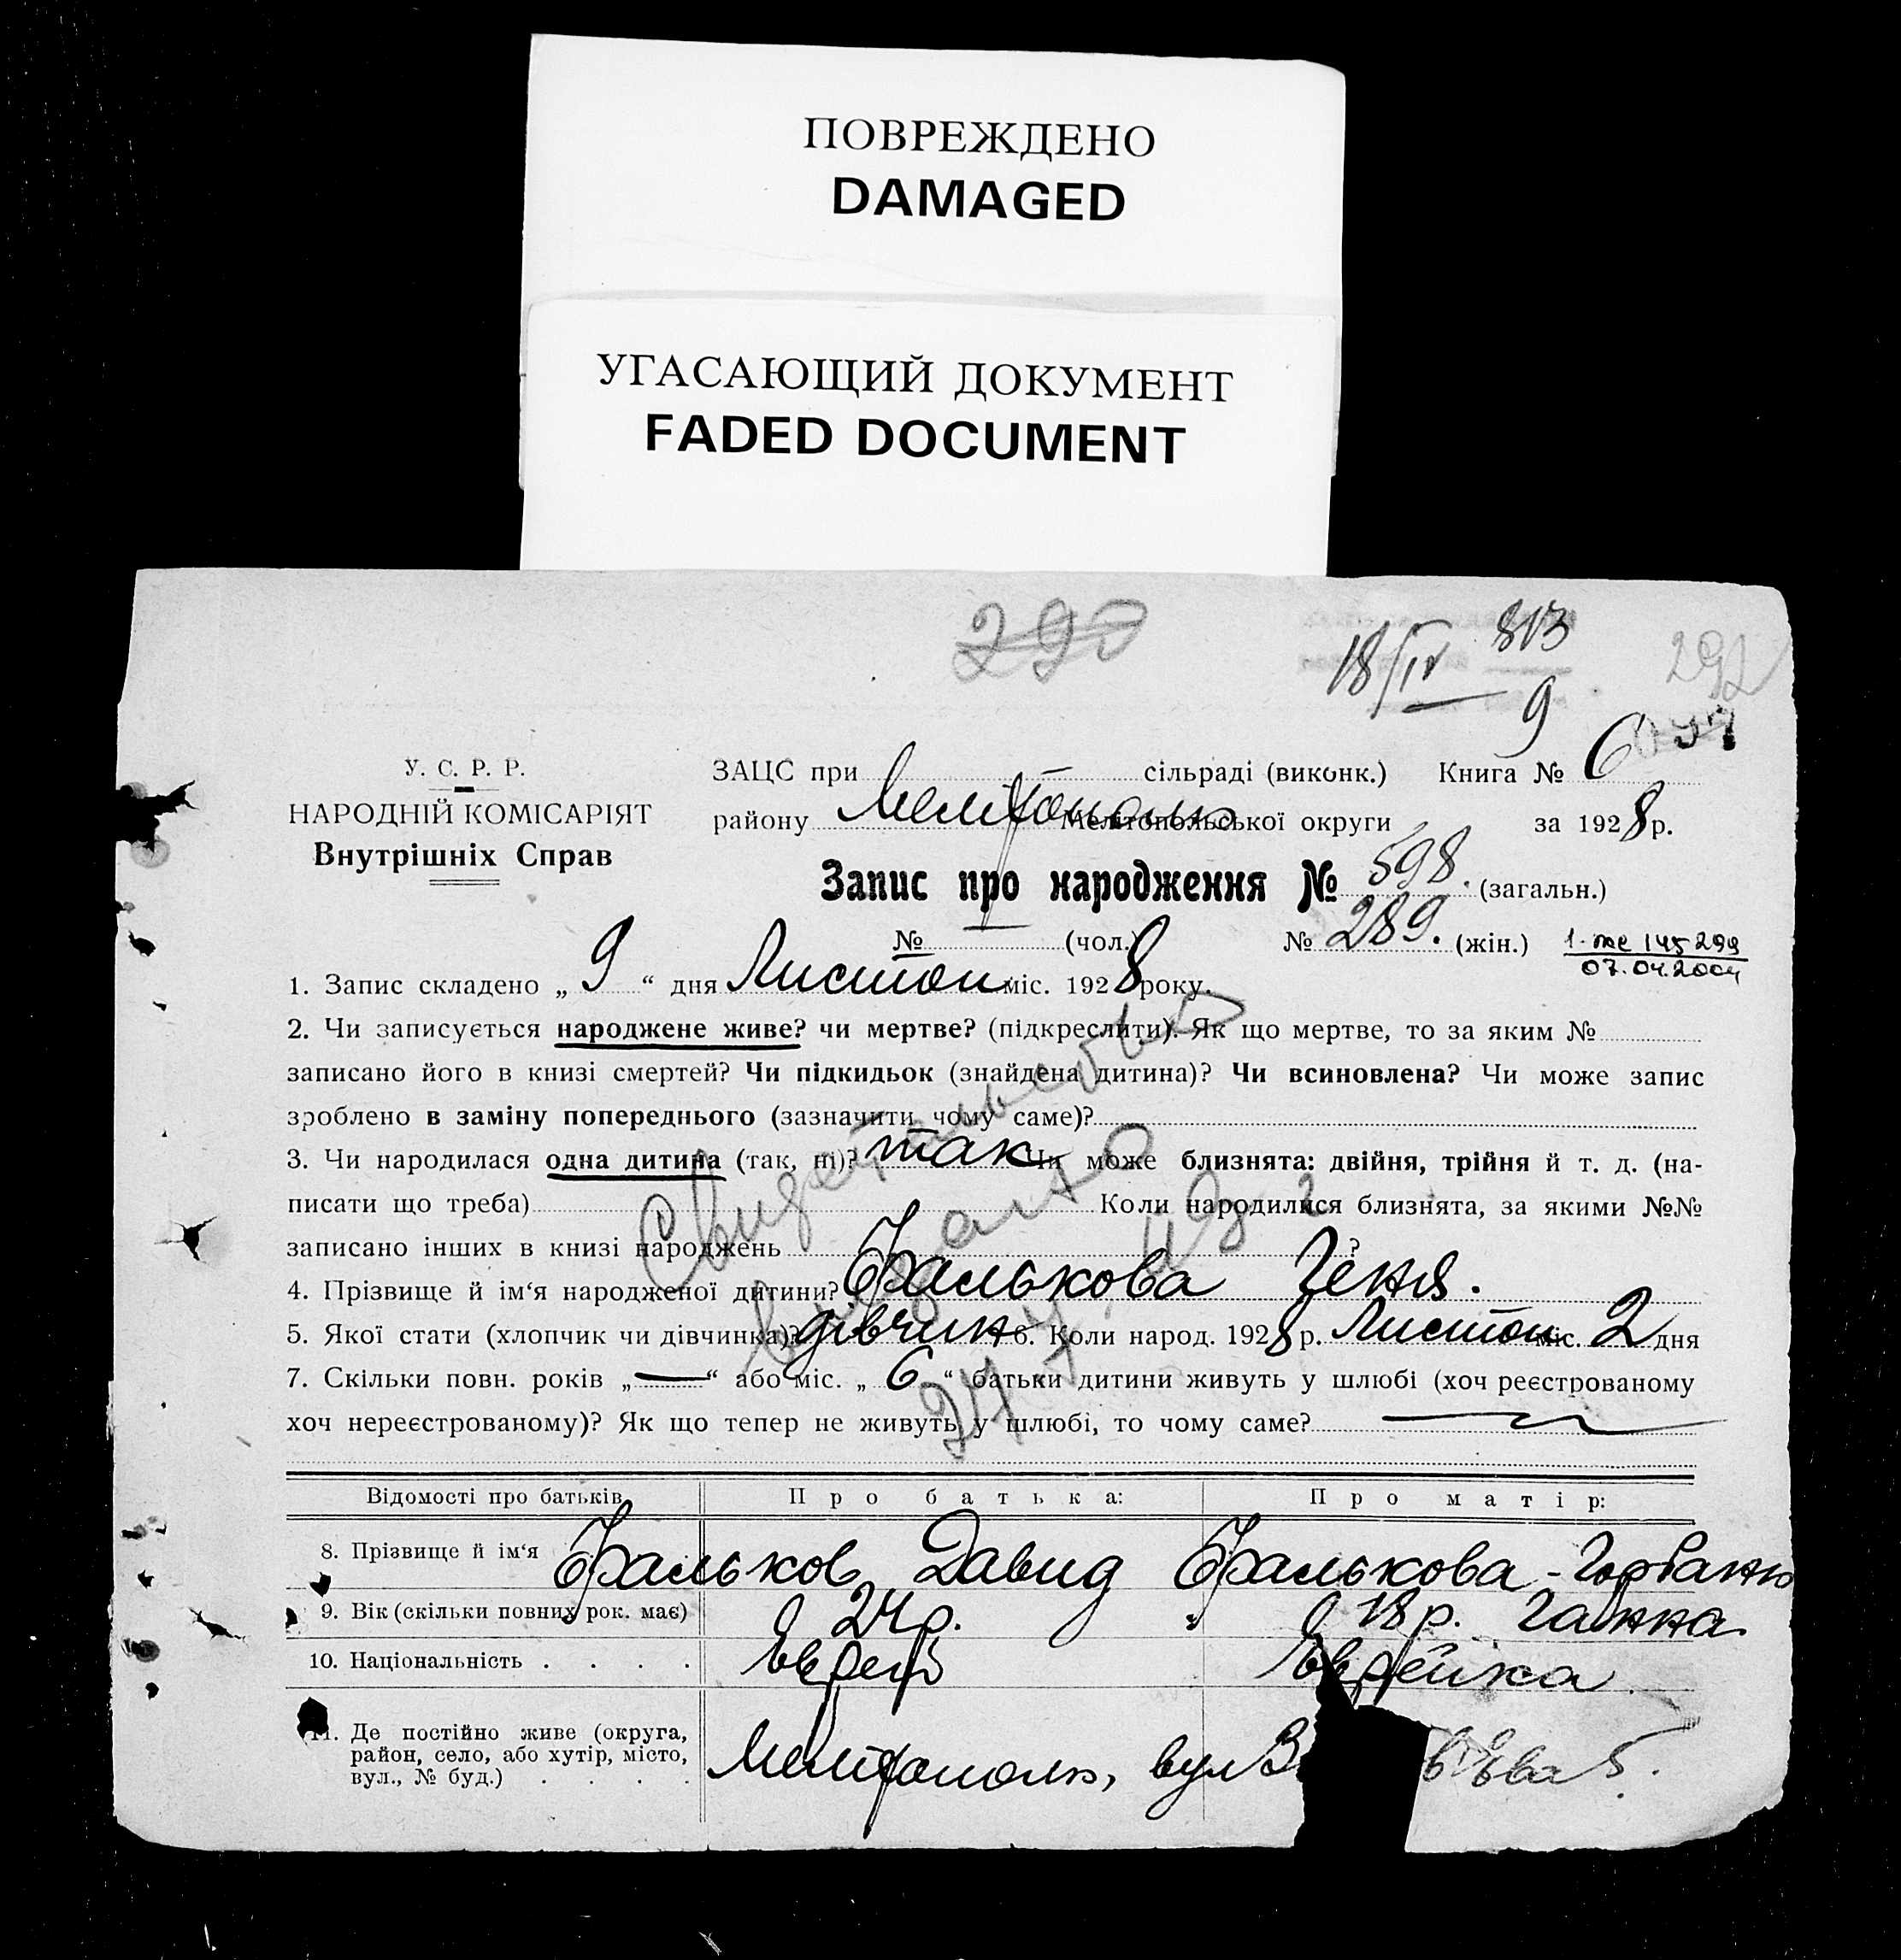 ПОВРЕЖДЕНО
DAMAGED
УГАСАЮЩИЙ ДОКУМЕНТ
FADED DOCUMENT
290
18/IV 813
9
292
У. С. Р. Р.
НАРОДНІЙ КОМІСАРІЯТ
Внутрішніх Справ
ЗАЦС при сільраді (виконк.) Книга № 6
району Мелітополь Мелітопольської округи за 1928 р.
Запис про народження № 598. (загальн.)
№ — (чол.) № 289. (жін.)
1-же 145299
07.04.2004
1. Запис складено „ 9 “ дня Листоп міс. 1928 року.
2. Чи записується народжене живе? чи мертве? (підкреслити). Як що мертве, то за яким №
записано його в книзі смертей? Чи підкидьок (знайдена дитина)? Чи всиновлена? Чи може запис
зроблено в заміну попереднього (зазначити чому саме)?
3. Чи народилася одна дитина (так, ні)? так Чи може близнята: двійня, трійня й т. д. (на-
писати що треба) Коли народилися близнята, за якими №№
записано інших в книзі народжень ?
4. Прізвище й ім‘я народженої дитини? Фалькова Геня.
5. Якої стати (хлопчик чи дівчинка)? дівчин 6. Коли народ. 1928 р. Листоп міс. 2 дня
7. Скільки повн. років „ — “ або міс. „ 6 “ батьки дитини живуть у шлюбі (хоч реєстрованому
хоч нереєстрованому)? Як що тепер не живуть у шлюбі, то чому саме?
Свидетельство
Відомості про батьків Про батька: Про матір:
8. Прізвище й ім‘я Фальков Давид Фалькова-
9. Вік (скільки повних рок. має) 24 р. 18 р. Ганна
10. Національність . . . . Єврей Єврейка
11. Де постійно живе (округа,
район, село, або хутір, місто,
вул., № буд.) . . . . Мелітополь, вул 5.